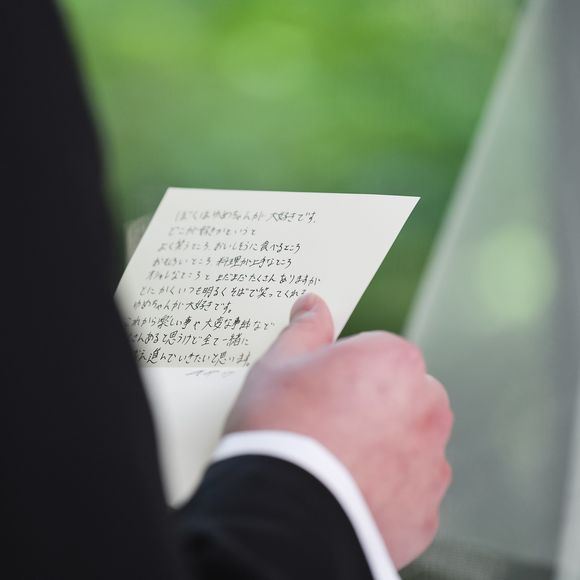 ぼくはゆめちゃんが大好きです。
どこが好きかというと
よく笑うところ、おいしそうに食べるところ
おもろいところ 料理が上手なところ
オシャレなところと まだまだたくさんありますが
とにかくいつも明るくそばで笑ってくれる
ゆめちゃんが大好きです。
これから楽しい事や大変な事件など
さんあると思うけど全て一緒に
え進んでいきたいと思います。